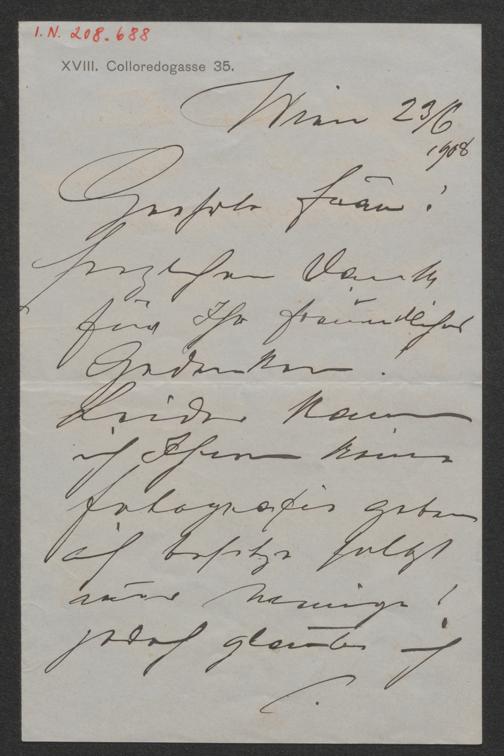 I.N. 208.688
XVIII. Colloredogasse 35.
Wien 23/6
1908
Geehrte Frau!
herzlichen Dank
für Ihr freundliches
Gedenken.
Leider kann
ich Ihnen keine
Fotografie geben
ich besitze selbst
nur wenige!
jedoch glaube ich